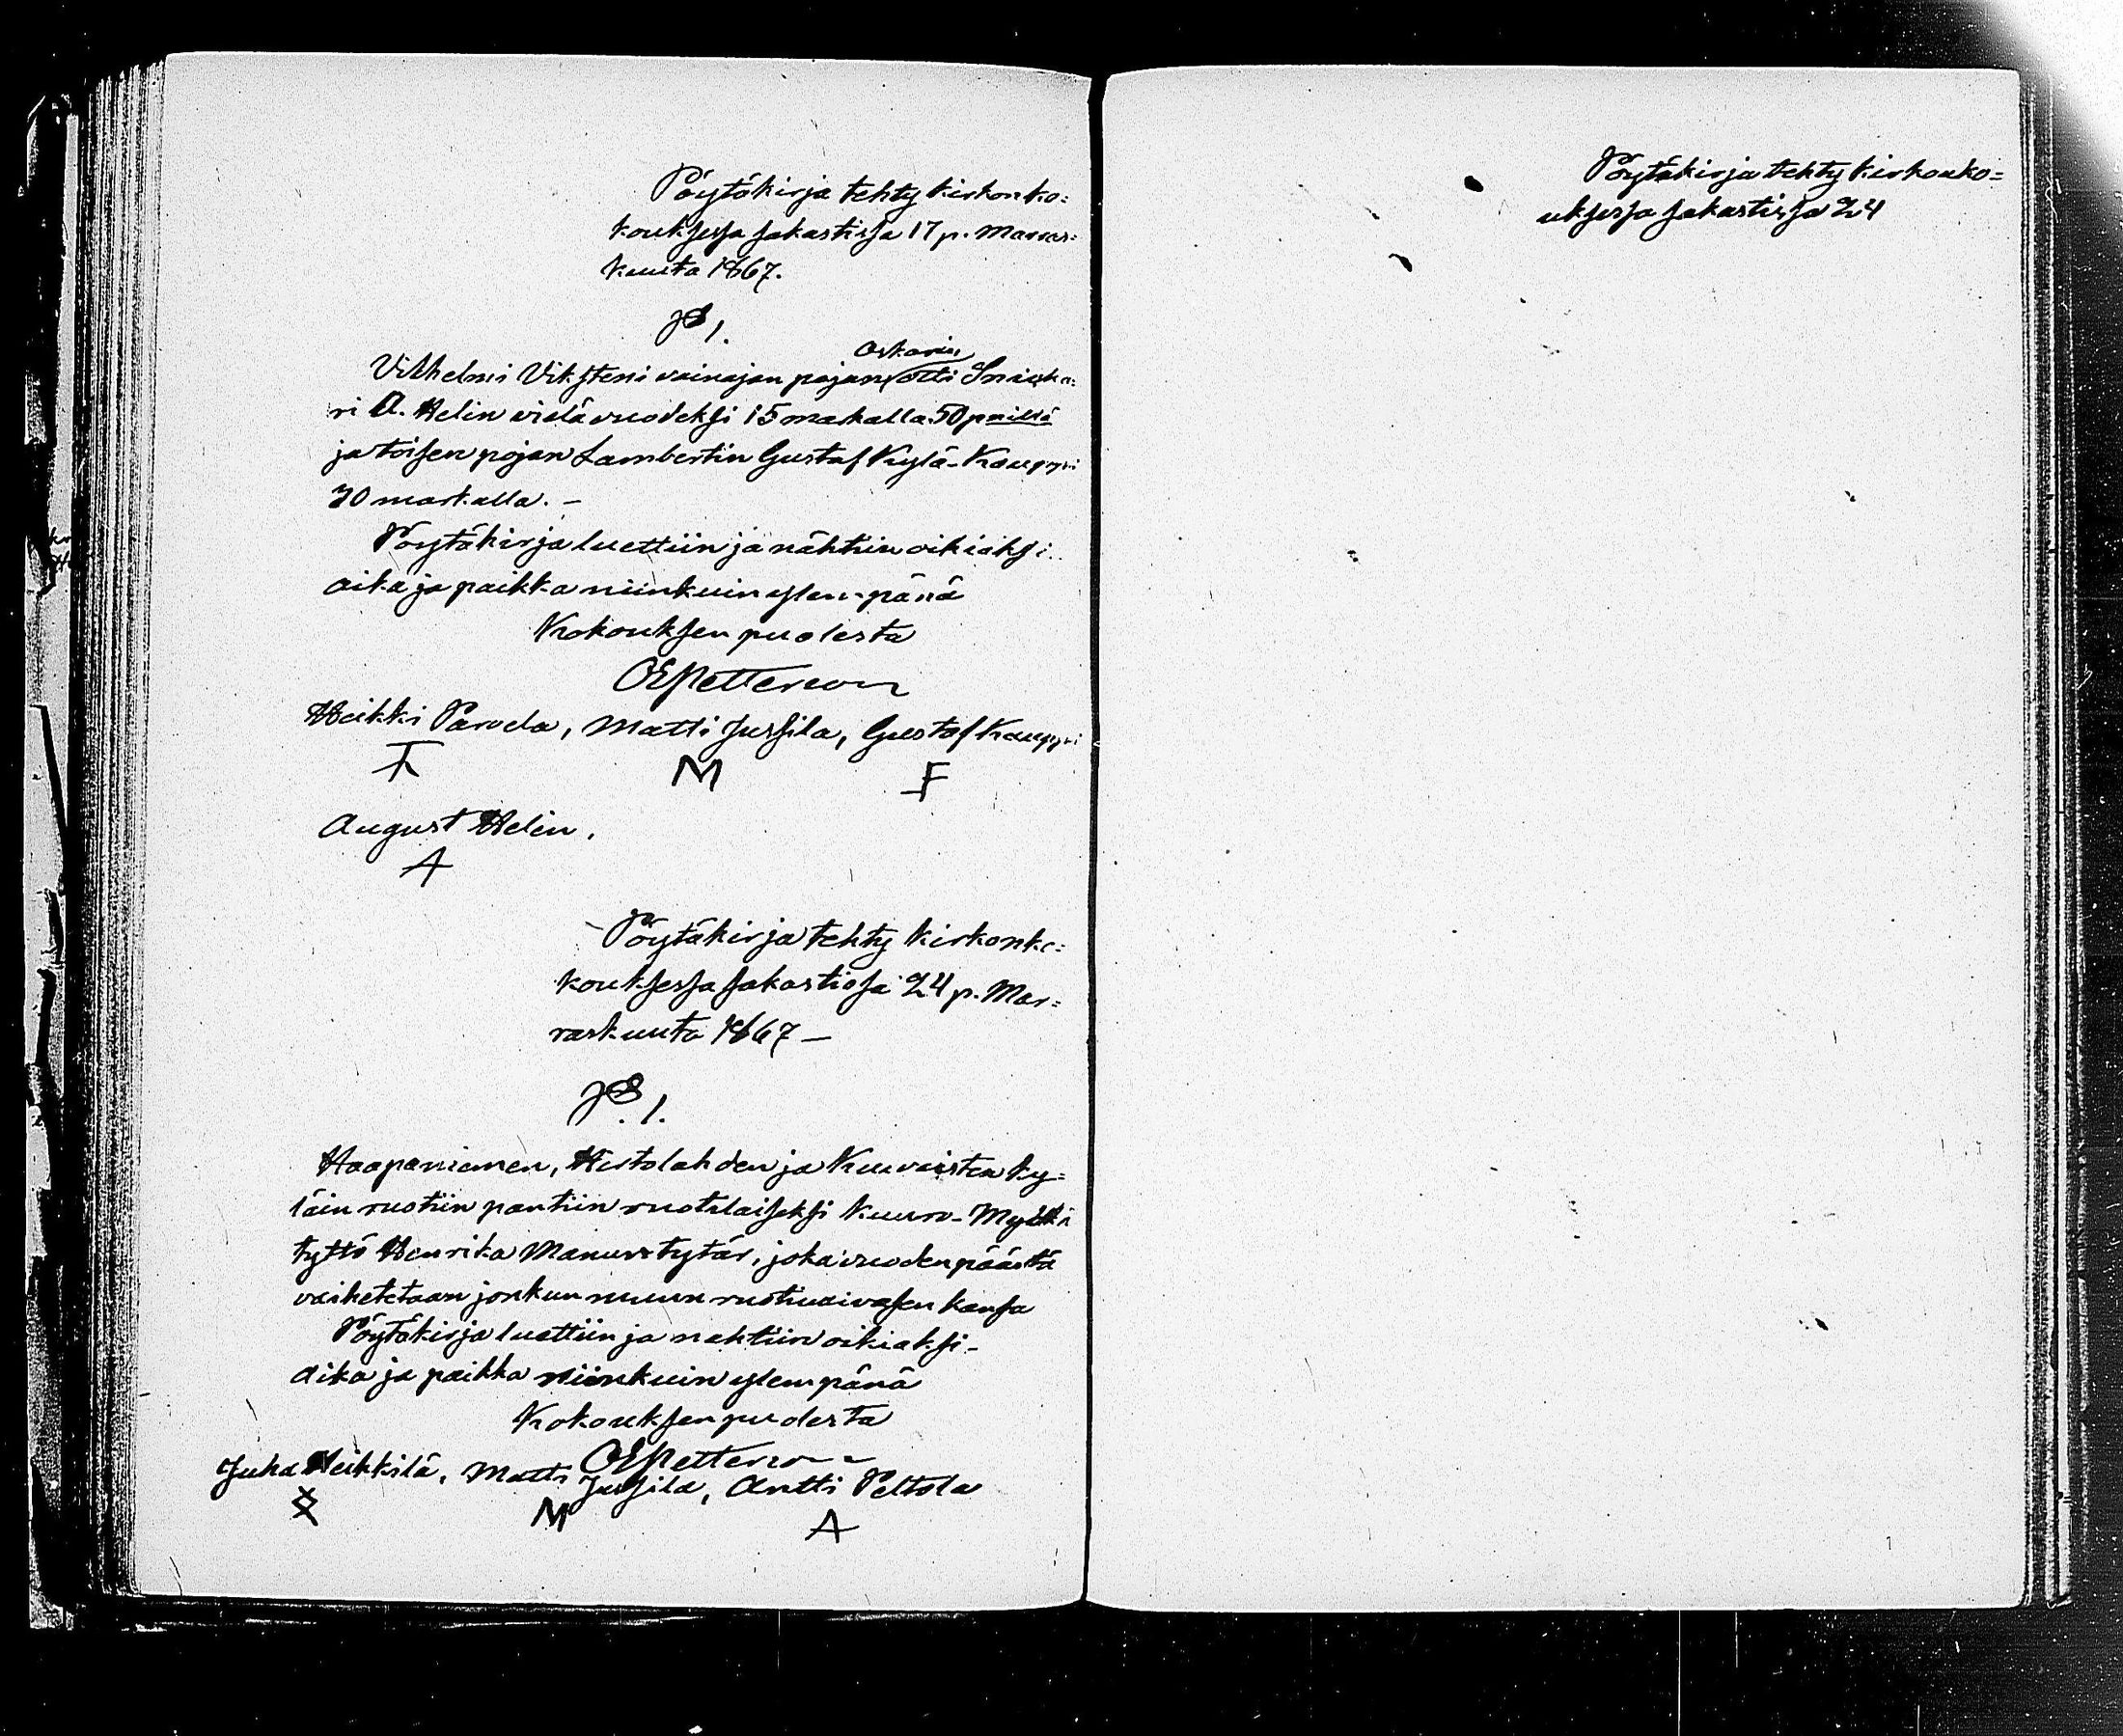 Pöytäkirja tehty kirkonko=
kouksessa sakastissa 17 p. Marras=
kuuta 1867.
§ 1.
Vilhelmi Viksteni vainajan pojan Oskarin otti Snikka=
ri A. Helin vielä vuodeksi 15 markalla 50 pnillä
ja toisen pojan Lambertin Gustaf Kylä-Kauppi
70 markalla. –
Pöytäkirja luettiin ja nähtiin oikiaksi.
aika ja paikka niinkuin ylempänä
Kokouksen puolesta
OEPetterson
Heikki Parvela, Matti Jussila, Gustaf Kauppi
M F
August Helin.
A
Pöytäkirja tehty kirkonko=
kouksessa sakastissa 24 p. Mar=
raskuuta 1867 –
§. 1.
Haapaniemen, Hirtolahden ja Kuuvaisten ky=
läin ruotiin pantiin ruotilaiseksi kuuro-Mykkä
tyttö Henrika Manustytär, joka vuoden päästä
vaihetetaan jonkun muun ruotivaivasen kansa
Pöytäkirja luettiin ja nähtiin oikiaksi –
aika ja paikka niinkuin ylempänä
Kokouksen puolesta
OEPetterson
Juha Heikkilä, Matti Jussila, Antti Peltola
M A
Pöytäkirja tehty kirkonko=
uksessa sakastissa 24